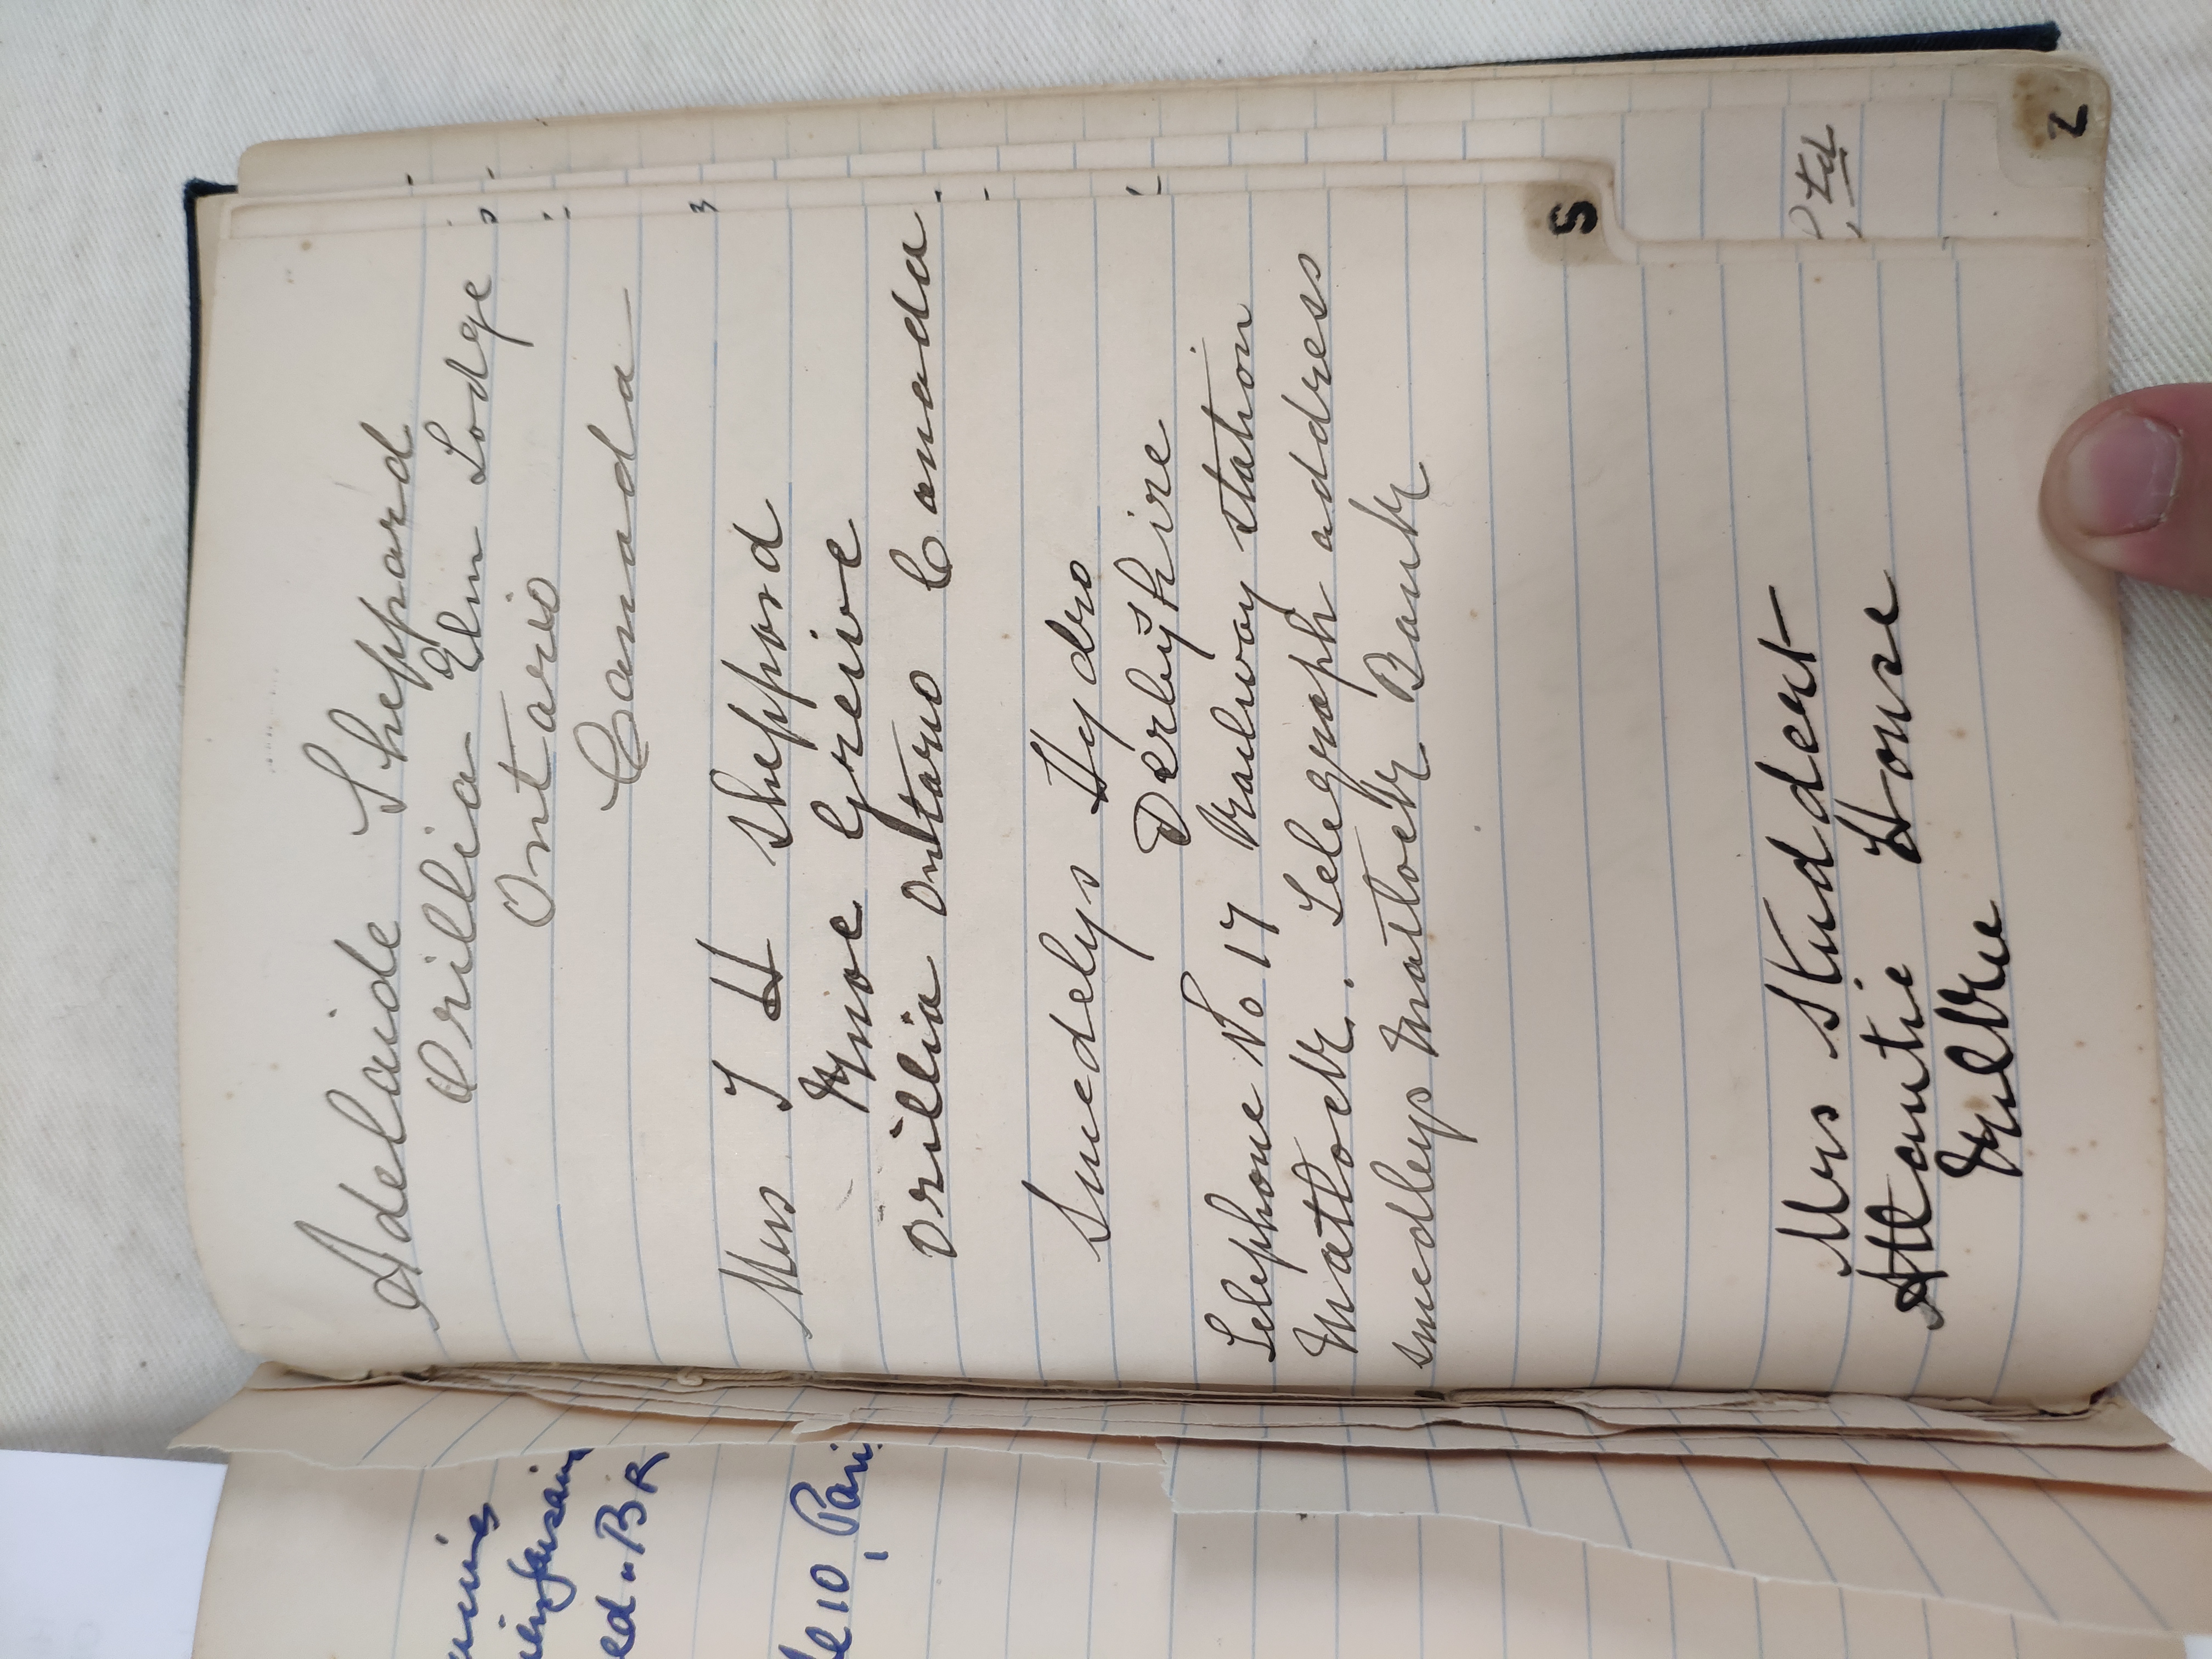 Adelaide Sheppard
Orillia Elm Lodge
Ontario
Canada
Mrs T H Sheppard
Knoe Greive
Orillia Ontario Canada
Smedelys Hydro
Derbyshire
Telephone No 17 Railway station
Matlock. Telegraph address
smedleys Matlock Bank
Mrs Studdert
Atlantic House
Kilkee
S
Ltd
Z
ed "BR
10, Pari